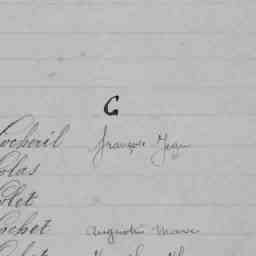 C
Cocheril François Jean
Colas
Colet
Cochet Augustin Marie